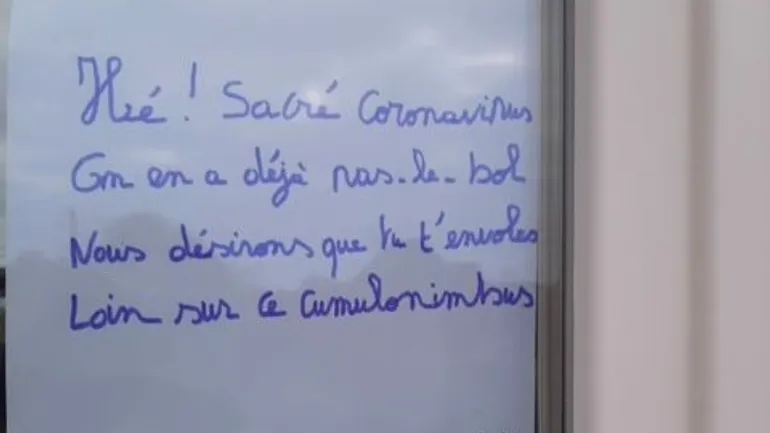 Hé ! Sacré Coronavirus
On en a déjà ras-le-bol
Nous désirons que tu t'envoles
Loin sur ce Cumulonimbus